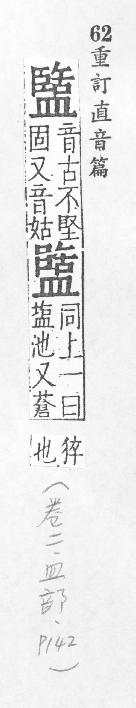 62重訂直音篇
盬音古不堅
固又音姑盬同上一曰
盐池又蒼
猝
也
(卷二、皿部、
P142)